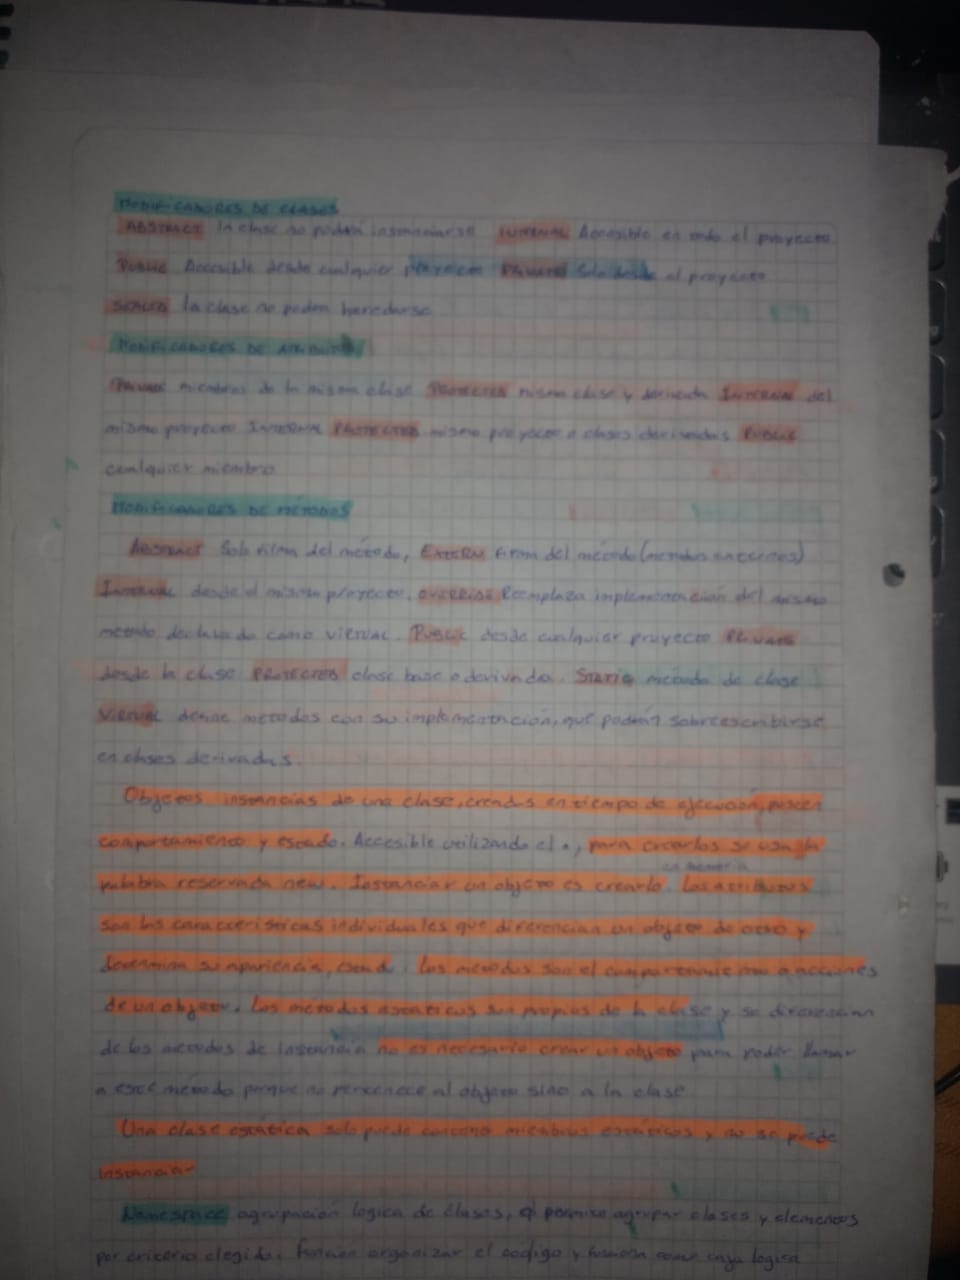 MODIFICADORES DE CLASES
ABSTRACT la clase no podrá instanciarse INTERNAL Accesible en todo el proyecto
PUBLIC Accesible desde cualquier proyecto PRIVATE Solo desde el proyecto
SEALED la clase no podrá heredarse
MODIFICADORES DE ATRIBUTOS
PRIVATE miembros de la misma clase PROTECTED misma clase y derivada INTERNAL del
mismo proyecto INTERNAL PROTECTED mismo proyecto o clases derivadas PUBLIC
cualquier miembro
MODIFICADORES DE MÉTODOS
ABSTRACT Solo firma del método, EXTERN firma del método (métodos externos)
INTERNAL desde el mismo proyecto, OVERRIDE Reemplaza implementación del mismo
método declarado como VIRTUAL. PUBLIC desde cualquier proyecto PRIVATE
desde la clase PROTECTED clase base o derivada. STATIC método de clase
VIRTUAL define métodos con su implementación, que podrán sobreescribirse
en clases derivadas.
Objetos instancias de una clase, creados en tiempo de ejecución, poseen
comportamiento y estado. Accesible utilizando el ., para crearlos se usa la
en memoria
palabra reservada new. Instanciar un objeto es crearlo. Los atributos
son las características individuales que diferencian un objeto de otro y
determina su apariencia, estad. Los métodos son el comportamiento o acciones
de un objeto. Los métodos estáticos son propios de la clase y se diferencian
de los métodos de instancia no es necesario crear un objeto para poder llamar
a este método porque no pertenece al objeto sino a la clase
Una clase estática solo puede miembros estáticos y no se puede
instanciar
Namespace agrupación lógica de clases, permite agrupar clases y elementos
por criterio elegido. Función organizar el código y funciona como caja lógica